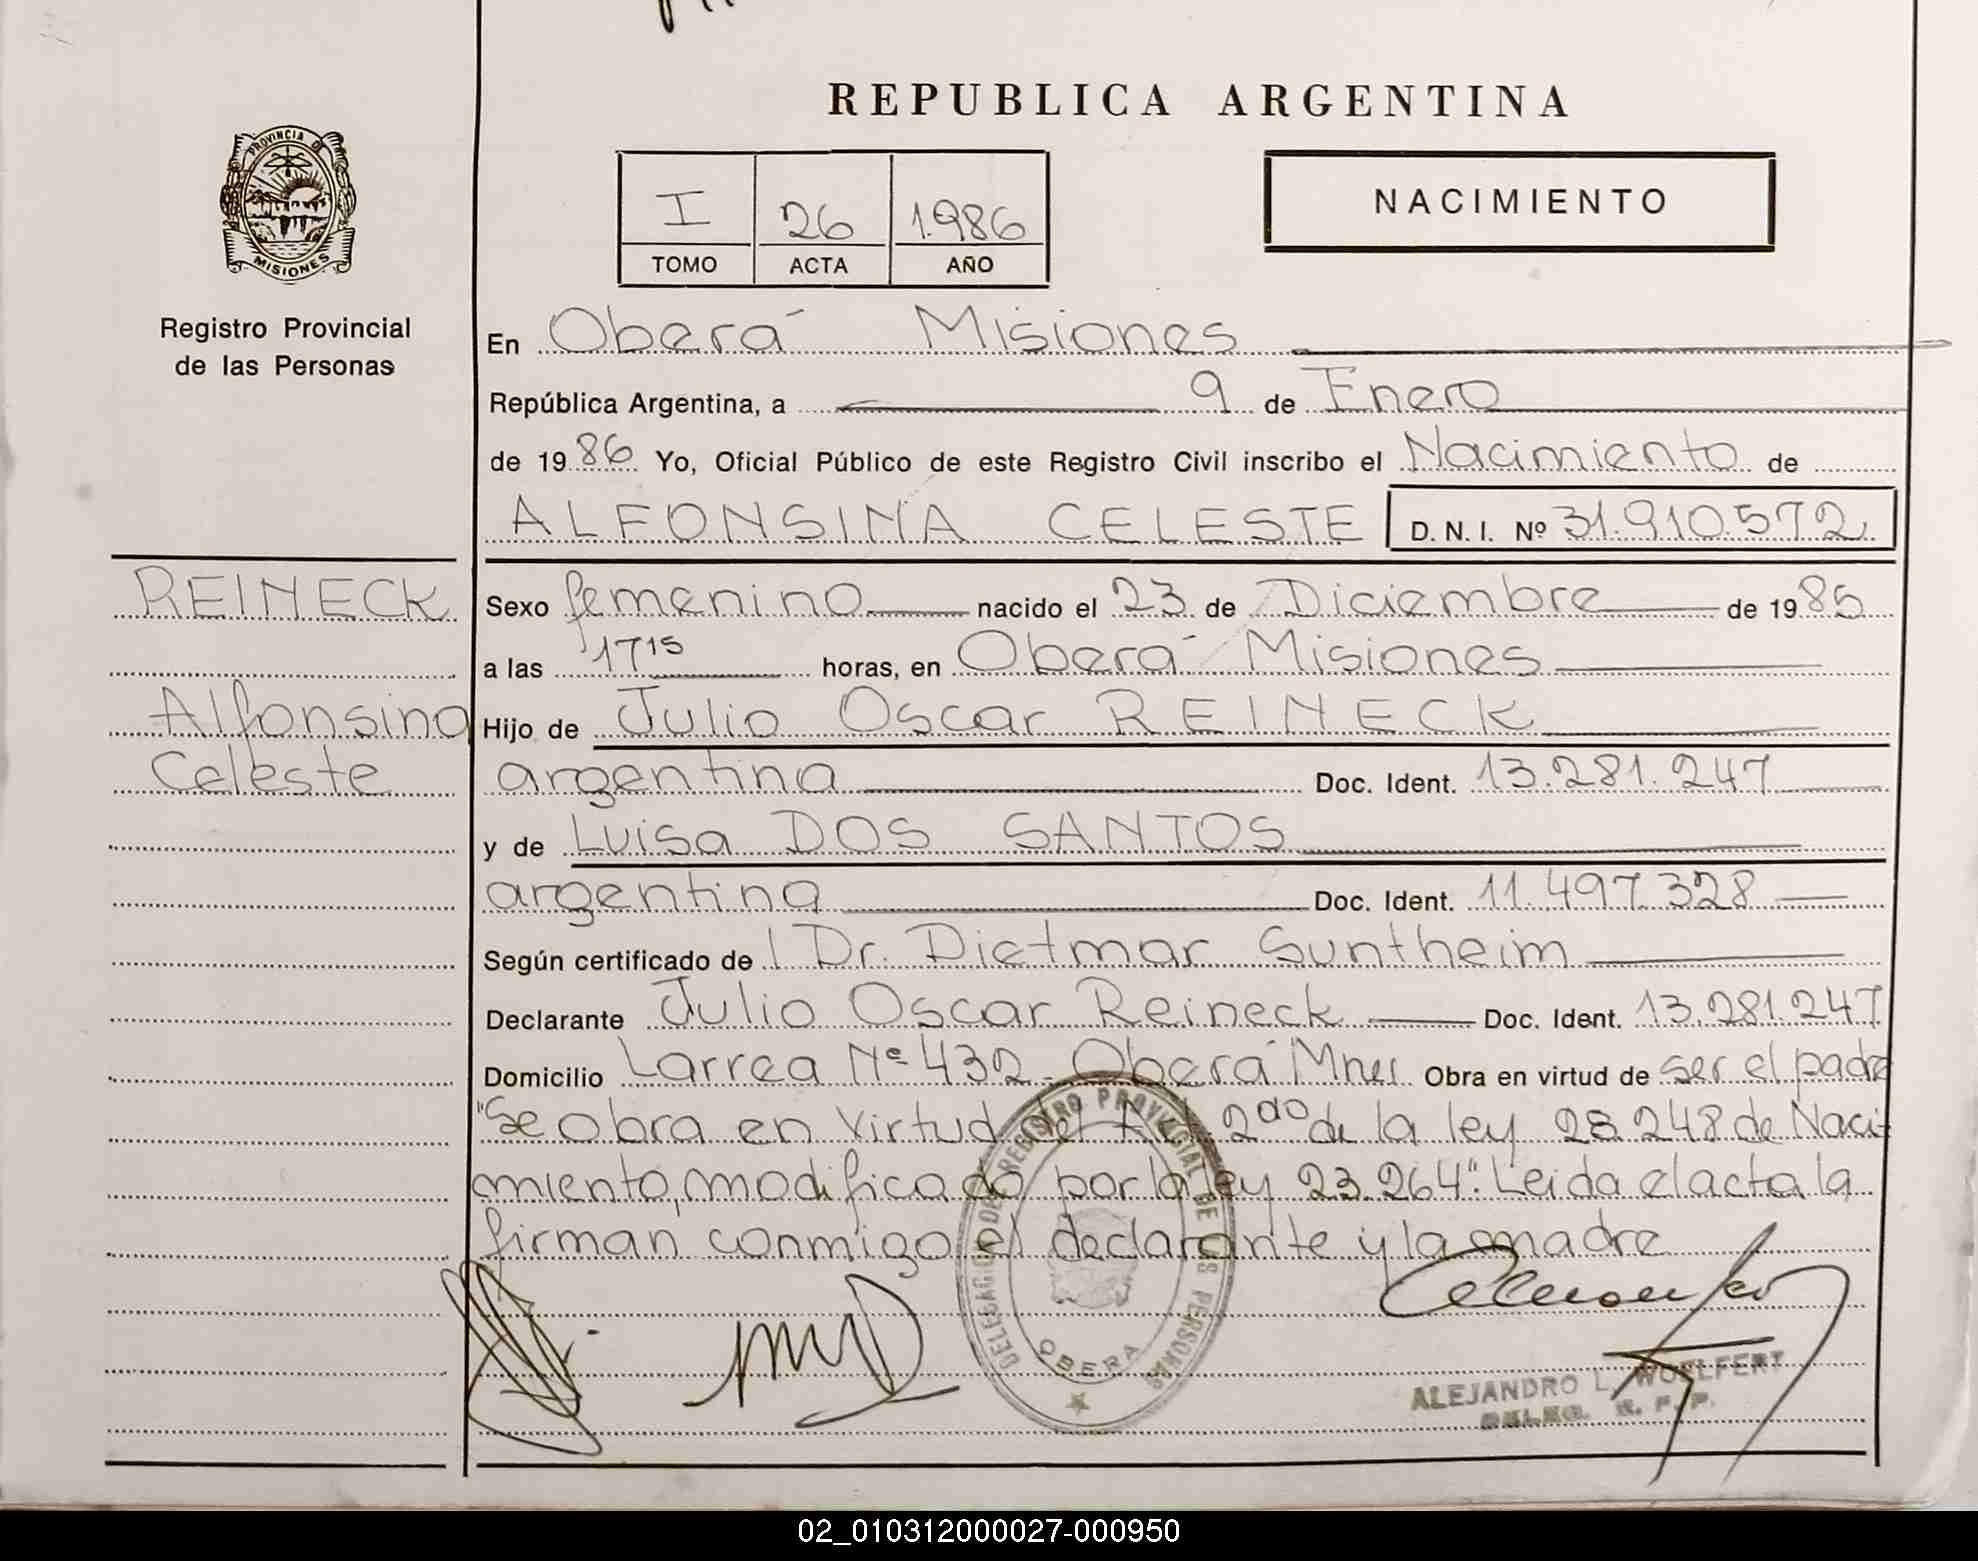 REPUBLICA ARGENTINA
PROVINCIA DE
MISIONES
Registro Provincial
de las Personas
I 26 1.986
TOMO ACTA AÑO
NACIMIENTO
En Oberá Misiones
República Argentina, a 9 de Enero
de 1986 Yo, Oficial Público de este Registro Civil inscribo el Nacimiento de
ALFONSINA CELESTE D. N. I. Nº 31.910.572.
REINECK
Alfonsina
Celeste
Sexo femenino nacido el 23 de Diciembre de 1985
a las 17 15 horas, en Oberá Misiones
Hijo de Julio Oscar REINECK
argentina Doc. Ident. 13.281.247
y de Luisa DOS SANTOS
argentina Doc. Ident. 11.497.328
Según certificado de Dr. Dietmar Suntheim
Declarante Julio Oscar Reineck Doc. Ident. 13.281.247
Domicilio Larrea Nº 432. Oberá Mnes Obra en virtud de ser el padre
"Se obra en virtud del Art 2do de la ley 23.248 de Naci-
miento, modificado por la ley 23.264". Leida el acta la
firman conmigo el declarante y la madre
DELEGACION DE REGISTRO PROVINCIAL DE LAS PERSONAS
OBERA
ALEJANDRO L. WOELFERT
DELEG. R. P. P.
02_010312000027-000950